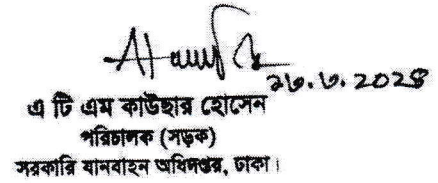 ২৬.৩.২০২৪
এ টি এম কাউছার হোসেন
পরিচালক (সড়ক)
সরকারি যানবাহন অধিদপ্তর, ঢাকা।